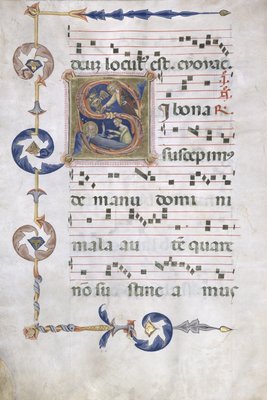 deus locut᷒ est. euouae
S I bona R.
suscepim᷒
de manu domi ni
mala au tē quare
nō su stine a mus